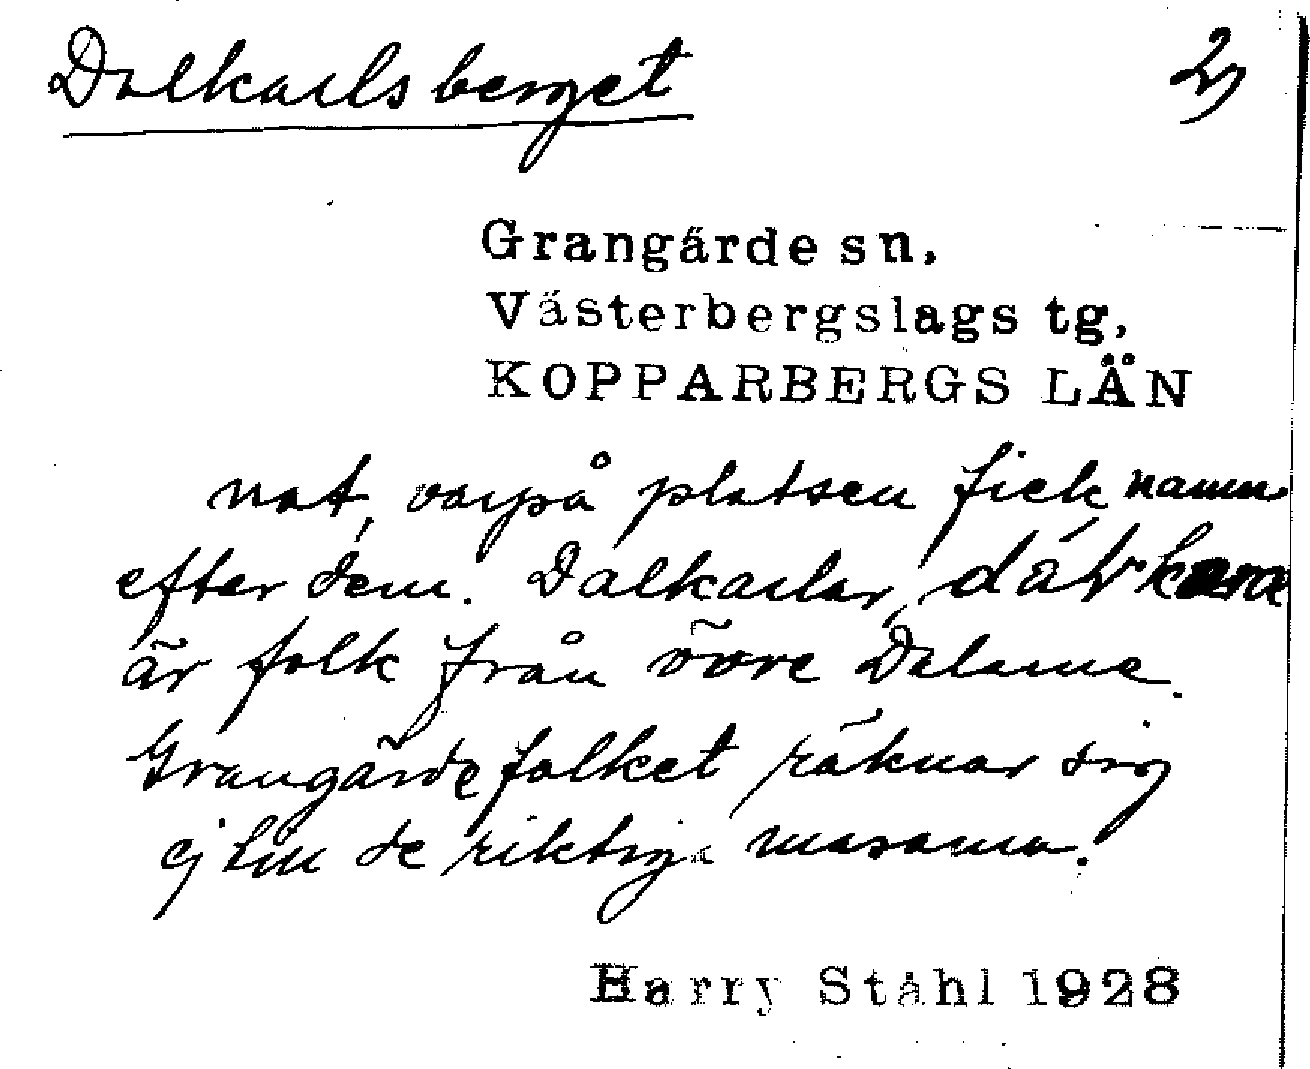 Dalkarlsberget 2)
Grangärde sn.
Västerbergslags tg,
KOPPARBERGS LÄN
nat, varpå platsen fick namn
efter dem. Dalkarlar,
är folk från övre Dalarne.
Grangärdefolket räknar sig
ej till de riktiga masarna.
Harry Ståhl 1928